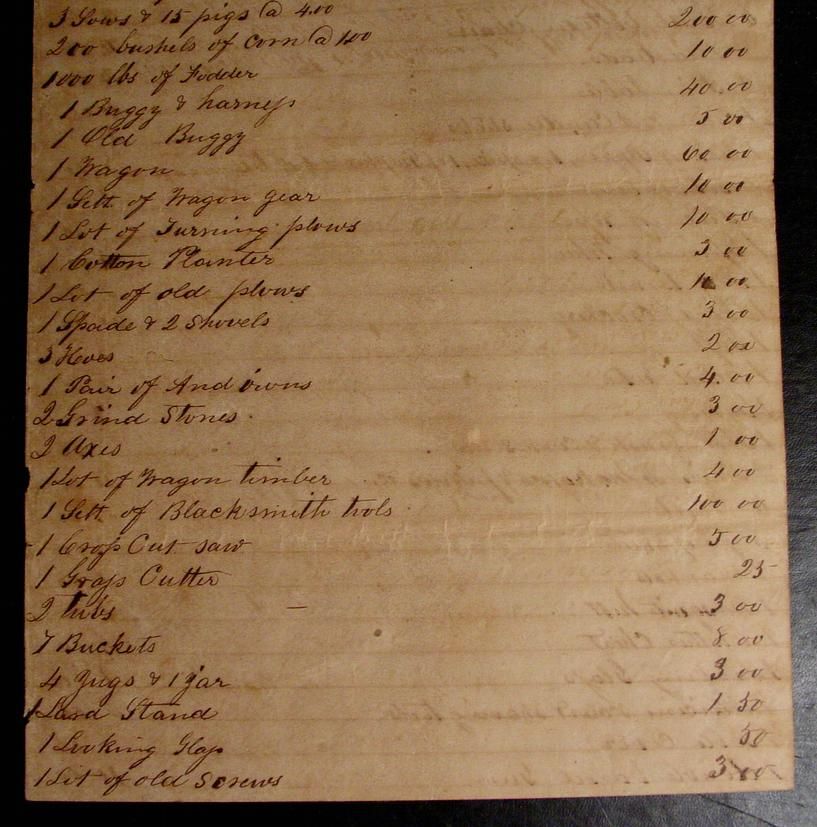 3 Sows & 15 pigs @ 4.00
200 bushels of corn @ 1.00 200 00
1000 lbs of Fodder 10 00
1 Buggy & harness 40.00
1 Old Buggy 5 00
1 Wagon 60 00
1 Sett of Wagon gear 10 00
1 Lot of Turning plows 10 00
1 Cotton Planter 3 00
1 Lot of old plows 00
1 Spade & 2 Shovels 3 00
3 Hoes 2 00
1 Pair of And irons 4.00
2 Grind Stones 3 00
2 Axes 1 00
1 Lot of Wagon timber 4 00
1 Sett of Blacksmith tools 100 00
1 Cross Cut saw 5 00
1 Grass Cutter 25
2 Tubs — 3 00
7 Buckets 8.00
4 Jugs & 1 jar 3 00
1 Lard Stand 1 50
1 Looking Glass 50
1 Lot of old Screws 3.00